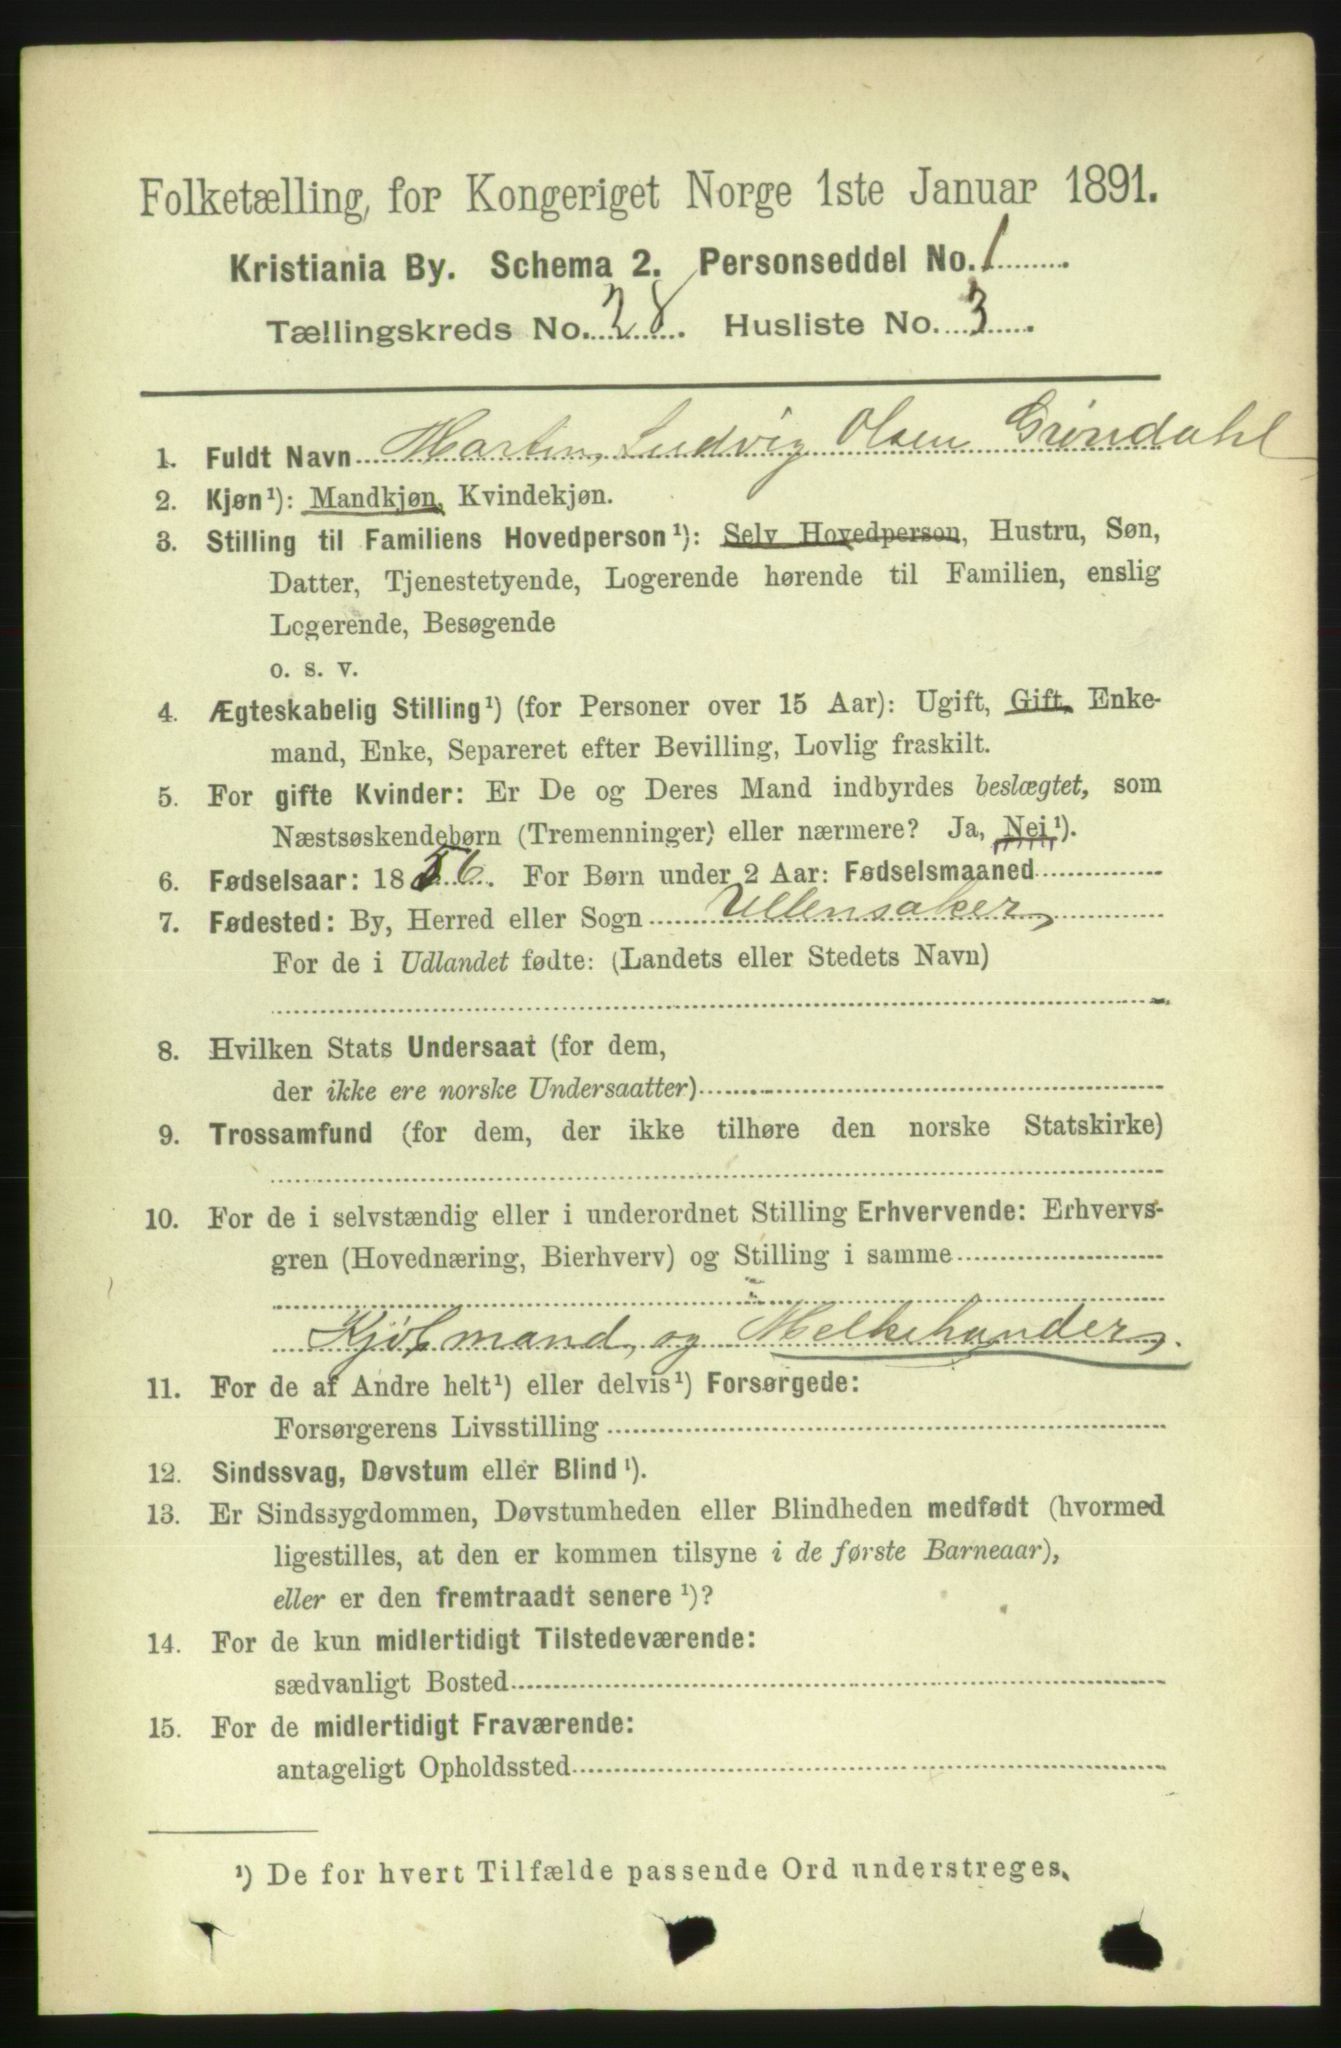 Folketælling for Kongeriget Norge 1ste Januar 1891.
Kristiania By. Schema 2. Personseddel No. 1
Tællingskreds No. 28. Husliste No. 3.
1. Fuldt Navn Martin Ludvig Olsen Grøndahl
2. Kjøn¹): Mandkjøn, Kvindekjøn.
3. Stilling til Familiens Hovedperson¹): Selv Hovedperson, Hustru, Søn,
Datter, Tjenestetyende, Logerende hørende til Familien, enslig
Logerende, Besøgende
o. s. v.
4. Ægteskabelig Stilling¹) (for Personer over 15 Aar): Ugift, Gift, Enke-
mand, Enke, Separeret efter Bevilling, Lovlig fraskilt.
5. For gifte Kvinder: Er De og Deres Mand indbyrdes beslægtet, som
Næstsøskendebørn (Tremenninger) eller nærmere? Ja, Nei¹).
6. Fødselsaar: 1856. For Børn under 2 Aar: Fødselsmaaned
7. Fødested: By, Herred eller Sogn Ullensaker
For de i Udlandet fødte: (Landets eller Stedets Navn)
8. Hvilken Stats Undersaat (for dem,
der ikke ere norske Undersaatter)
9. Trossamfund (for dem, der ikke tilhøre den norske Statskirke)
10. For de i selvstændig eller i underordnet Stilling Erhvervende: Erhvervs-
gren (Hovednæring, Bierhverv) og Stilling i samme
Kjøbmand, og Melkehandler.
11. For de af Andre helt¹) eller delvis¹) Forsørgede:
Forsørgerens Livsstilling
12. Sindssvag, Døvstum eller Blind¹).
13. Er Sindssygdommen, Døvstumheden eller Blindheden medfødt (hvormed
ligestilles, at den er kommen tilsyne i de første Barneaar),
eller er den fremtraadt senere¹)?
14. For de kun midlertidigt Tilstedeværende:
sædvanligt Bosted
15. For de midlertidigt Fraværende:
antageligt Opholdssted
¹) De for hvert Tilfælde passende Ord understreges.